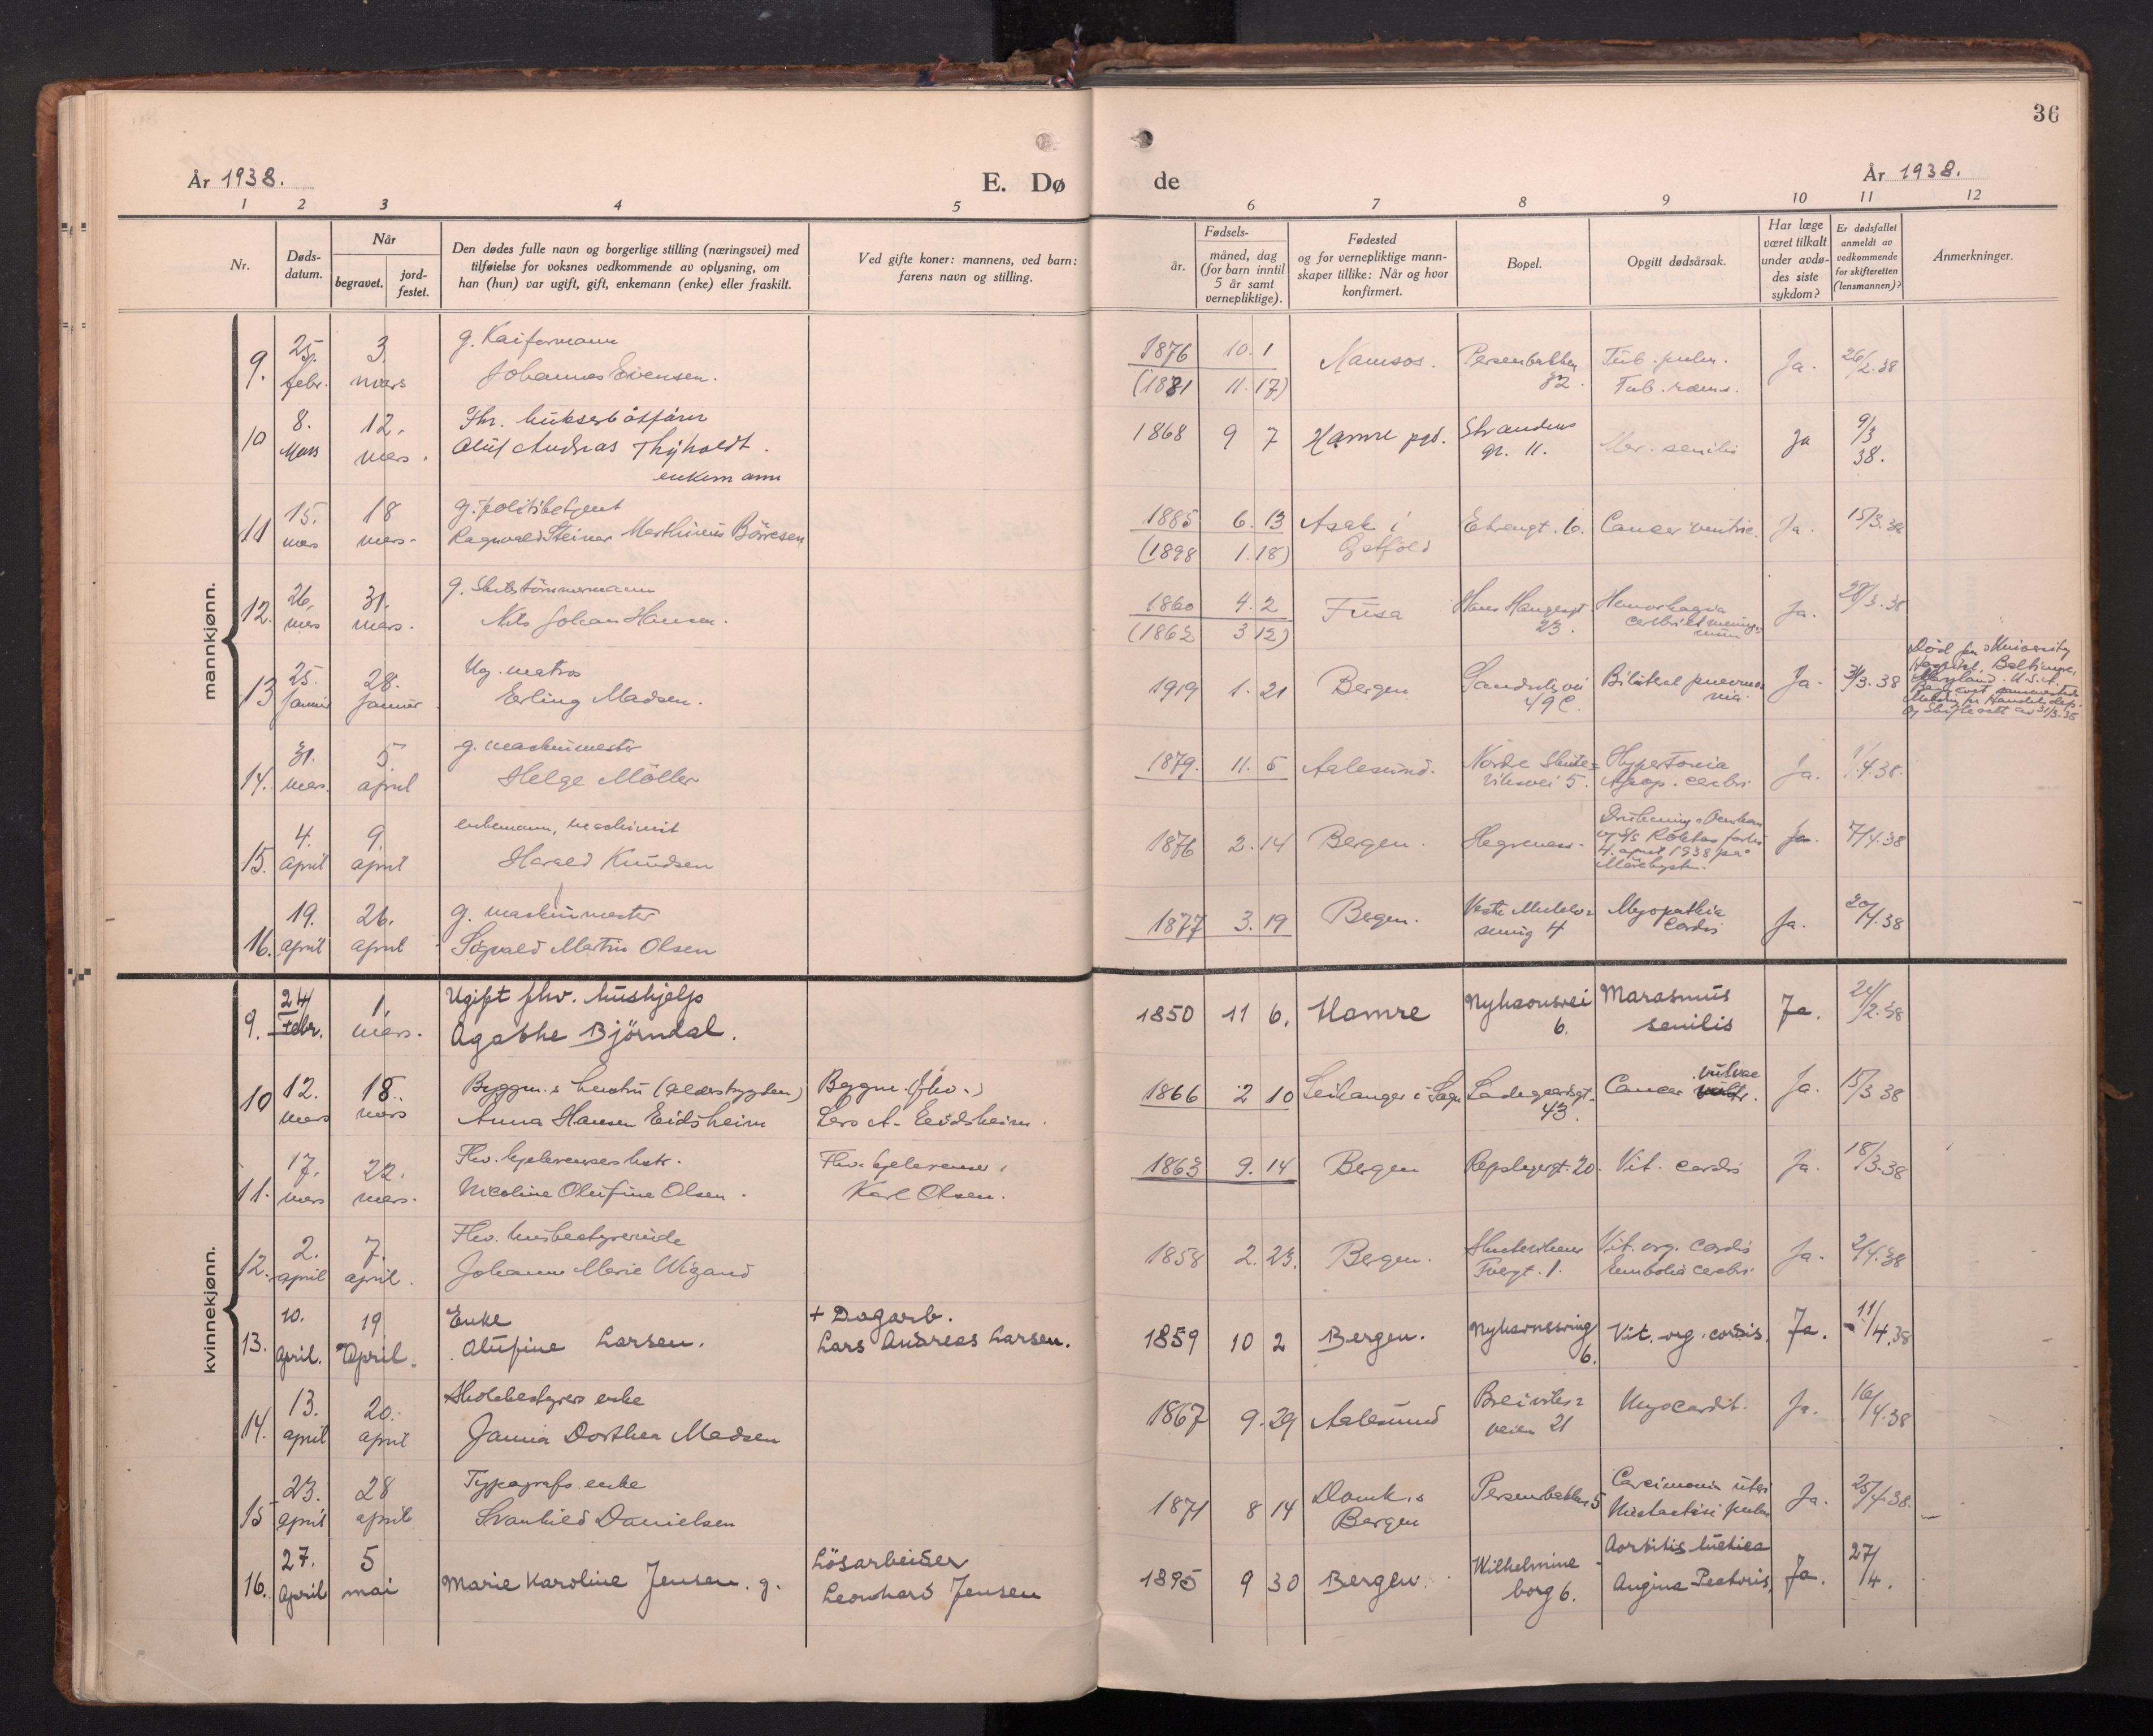 36
År 1938.
E. Dø
de
År 1938.
1 2 3 4 5 6 7 8 9 10 11 12
Nr.
Døds-
datum.
Når
begravet.
jord-
festet.
Den dødes fulle navn og borgerlige stilling (næringsvei) med
tilføielse for voksnes vedkommende av oplysning, om
han (hun) var ugift, gift, enkemann (enke) eller fraskilt.
Ved gifte koner: mannens, ved barn:
farens navn og stilling.
Fødsels-
år.
måned, dag
(for barn inntil
5 år samt
vernepliktige).
Fødested
og for vernepliktige mann-
skaper tillike: Når og hvor
konfirmert.
Bopel.
Opgitt dødsårsak.
Har læge
været tilkalt
under avdø-
des siste
sykdom?
Er dødsfallet
anmeldt av
vedkommende
for skifteretten
(lensmannen)?
Anmerkninger.
mannkjønn.
9. 25. febr. 3 mars
g. Kaiformann
Johannes Evensen.
1876 10. 1
(1881 11. 17)
Namsos.
Persenbakken
32.
Tub. pulm.
Ja.
26/2.38
10 8. Mars 12. mars.
Fhr.
Oluf Andreas Thyholdt.
enkemann
1868 9 7
Hamre pgd.
Strandens
gr. 11.
senilis
Ja
9/3
38.
11 15. mars 18 mars.
g. politibetjent
Ragnvald Steinar Marthinus Börresen
1885 6. 13
(1898 1. 18)
Asak i
Östfold
Cancer ventric.
Ja.
15/3.38
12. 26. mars 31. mars.
g. Skibstömmermann
Nils Johan Hansen.
1860 4. 2
(1862 3 12)
Fusa
Hans Haugesgt.
23.
Hemorhagia
Ja.
28/3.38
13 25. Januar 28. Januar
Ug. matros
Erling Madsen.
1919 1. 21
Bergen
Sandviksvei
49 C.
Bilateral pneumo-
nia.
Ja.
31/3.38
Död på University
Hospital, Baltimore,
Maryland. U.S.A.
Begravet sammesteds
14. 31. mars. 5. april
g. maskinmester
Helge Möller
1879. 11. 5
Aalesund.
Nordre Skute-
viksvei 5.
Hypertonia
Apop. cerebri
Ja.
1/4.38.
15. 4. april 9. april
enkemann, maskinist
Harald Knudsen
1876 2. 14
Bergen.
Hegrenes.
4. april 1938 på
Mörekysten.
Ja.
7/4.38
16. 19. april 26. april
g. maskinmester
Sigvald Martin Olsen
1877 3. 19
Bergen.
4
Myopathia
Cordis
Ja.
20/4.38
kvinnekjønn.
9. 24 Febr. 1. mars.
Ugift fhv. hushjelp
Agathe Björndal.
1850 11 6.
Hamre
Nyhavnsvei
6.
Marasmus
senilis
Ja.
24/2.38
10 12. mars 18. mars
Byggm.s hustru (alderstrygden)
Anna Hansen Eidsheim
Byggm. (fhv.)
Lars A. Eidsheim.
1866 2 10
Leikanger i Sogn
Ladegaardsgt.
43.
Cancer vulvae
Ja.
15/3 38
11. 17. mars 22. mars.
Nicoline Olufine Olsen.
Karl Olsen.
1863 9. 14
Bergen
Repslagergt. 20.
Vit. cordis
Ja.
18/3.38
12. 2. april 7. april.
Fhv. husbestyrerinde
Johanne Marie Wigand
1858 2. 23.
Bergen.
Skutevikens
Tvergt. 1.
Vit. org. cordis
Embolia cerebri
Ja.
2/4.38
13. 10. April. 19 April.
Enke
Olufine Larsen.
+ Dagarb.
Lars Andreas Larsen.
1859 10 2
Bergen.
Nyhavnsvring
6.
Vit. org. cordis.
Ja.
11/4.38
14. 13. april 20. april
Skolebestyrers enke
Janna Dorthea Madsen
1867 9. 29
Aalesund
Breiviks-
veien 21
Myocardit.
Ja.
16/4.38
15 23. april 28 april
Typografs enke
Svanhild Danielsen
1871 8 14
Domk.s
Bergen
Persenbakken 5
Ja.
25/4.38.
16. 27. April 5 mai
Marie Karoline Jensen. g.
Lösarbeider
Leonhard Jensen
1895 9 30
Bergen.
Wilhelmine-
borg 6.
Aortitis luetica
Angina Pectoris,
Ja.
27/4.